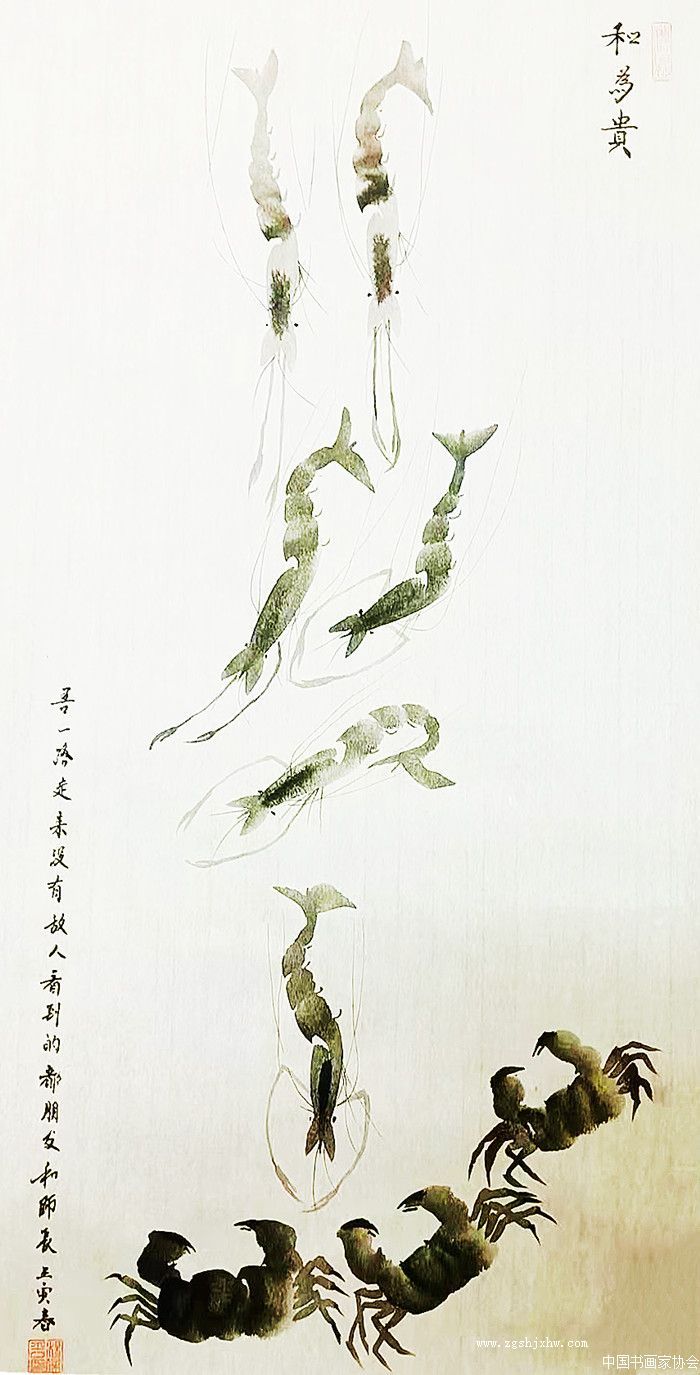 和為貴
吾一路走来没有故人看到的都朋友和师长壬寅春
www.zgshjxhw.com
中国书画家协会